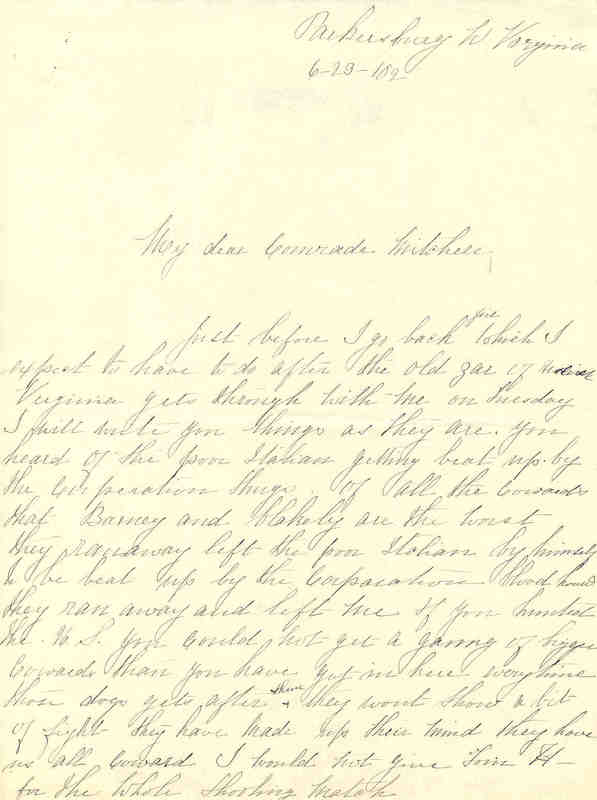 Parkersburg W Virginia
6-29-190
My dear Comrade Mitchell
Just before I go back which I
expect to have to do after the old zar of
Virginia gets through with me on Tuesday
I will write you things as they are. You
heard of the poor Italian getting beat up by
the Corperation thugs. of all the Cowards
that Barney and Blakely are the worst
they ran away left the poor Italian by himself
to be beat up by the Corporation blood hounds
they ran away and left me if you hunted
the U.S. you could not get a gang of bigger
Cowards than you have got in here everytime
thoes dogs gets after them they wont show a bit
of fight they have made up their mind they have
us all Coward I would not give Tom H-
for the whole shooting match